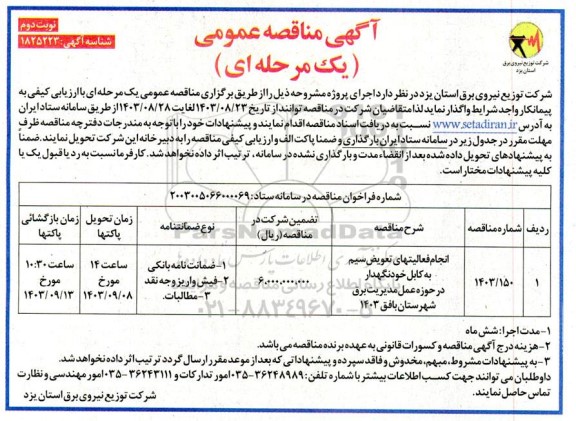 آگهی مناقصه عمومی
(یک مرحله ای)
نوبت دوم
شناسه آگهی: ۱۸۲۵۲۲۳
شرکت توزیع نیروی برق
استان یزد
شرکت توزیع نیروی برق استان یزد در نظر دارد اجرای پروژه مشروحه ذیل را از طریق برگزاری مناقصه عمومی یک مرحله ای با ارزیابی کیفی به
پیمانکار واجد شرایط واگذار نماید لذا متقاضیان شرکت در مناقصه توانند از تاریخ ۱۴۰۳/۰۸/۲۳ لغایت ۱۴۰۳/۰۸/۲۸ از طریق سامانه ستاد ایران
به آدرس www.setadiran.ir نسبت به دریافت اسناد مناقصه اقدام نمایند و پیشنهادات خود را با توجه به مندرجات دفترچه مناقصه ظرف
مهلت مقرر در جدول زیر در سامانه ستاد ایران بارگذاری و ضمنا پاکت الف و ارزیابی کیفی مناقصه را به دبیرخانه این شرکت تحویل نمایند. ضمناً
به پیشنهادهای تحویل داده شده بعد از انقضاء مدت و بارگذاری نشده در سامانه، ترتیب اثر داده نخواهد شد. کارفرما نسبت به رد یا قبول یک یا
کلیه پیشنهادات مختار است.
شماره فراخوان مناقصه در سامانه ستاد: ۲۰۰۳۰۰۵۰۶۶۰۰۰۰۶۹
ردیف شماره مناقصه شرح مناقصه تضمین شرکت در مناقصه (ریال) نوع ضمانتنامه زمان تحویل پاکتها زمان بازگشائی پاکتها
۱ ۱۴۰۳/۱۵۰ انجام فعالیتهای تعویض سیم به کابل خودنگهدار در حوزه عمل مدیریت برق شهرستان بافق ۱۴۰۳ ۶.۰۰۰.۰۰۰.۰۰۰ ۱- ضمانت نامه بانکی ۲- فیش واریز وجه نقد ۳- مطالبات. ساعت ۱۴ مورخ ۱۴۰۳/۰۹/۰۸ ساعت ۱۰:۳۰ مورخ ۱۴۰۳/۰۹/۱۳
۱- مدت اجرا: شش ماه
۲- هزینه درج آگهی مناقصه و کسورات قانونی به عهده برنده مناقصه می باشد.
۳- به پیشنهادات مشروط، مبهم، مخدوش و فاقد سپرده و پیشنهاداتی که بعد از موعد مقرر ارسال گردد ترتیب اثر داده نخواهد شد.
داوطلبان می توانند جهت کسب اطلاعات بیشتر با شماره تلفن: ۳۶۲۴۸۹۸۹-۰۳۵ امور تدارکات و ۳۶۲۴۳۱۱۱-۰۳۵ امور مهندسی و نظارت
تماس حاصل نمایند.
شرکت توزیع نیروی برق استان یزد
ParsNamadData
۰۲۱-۸۸۳۴۹۶۷۰-۵